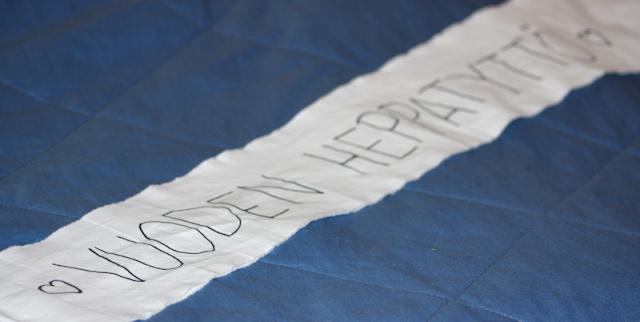 ♡ VUODEN HEPPATYTTÖ ♡